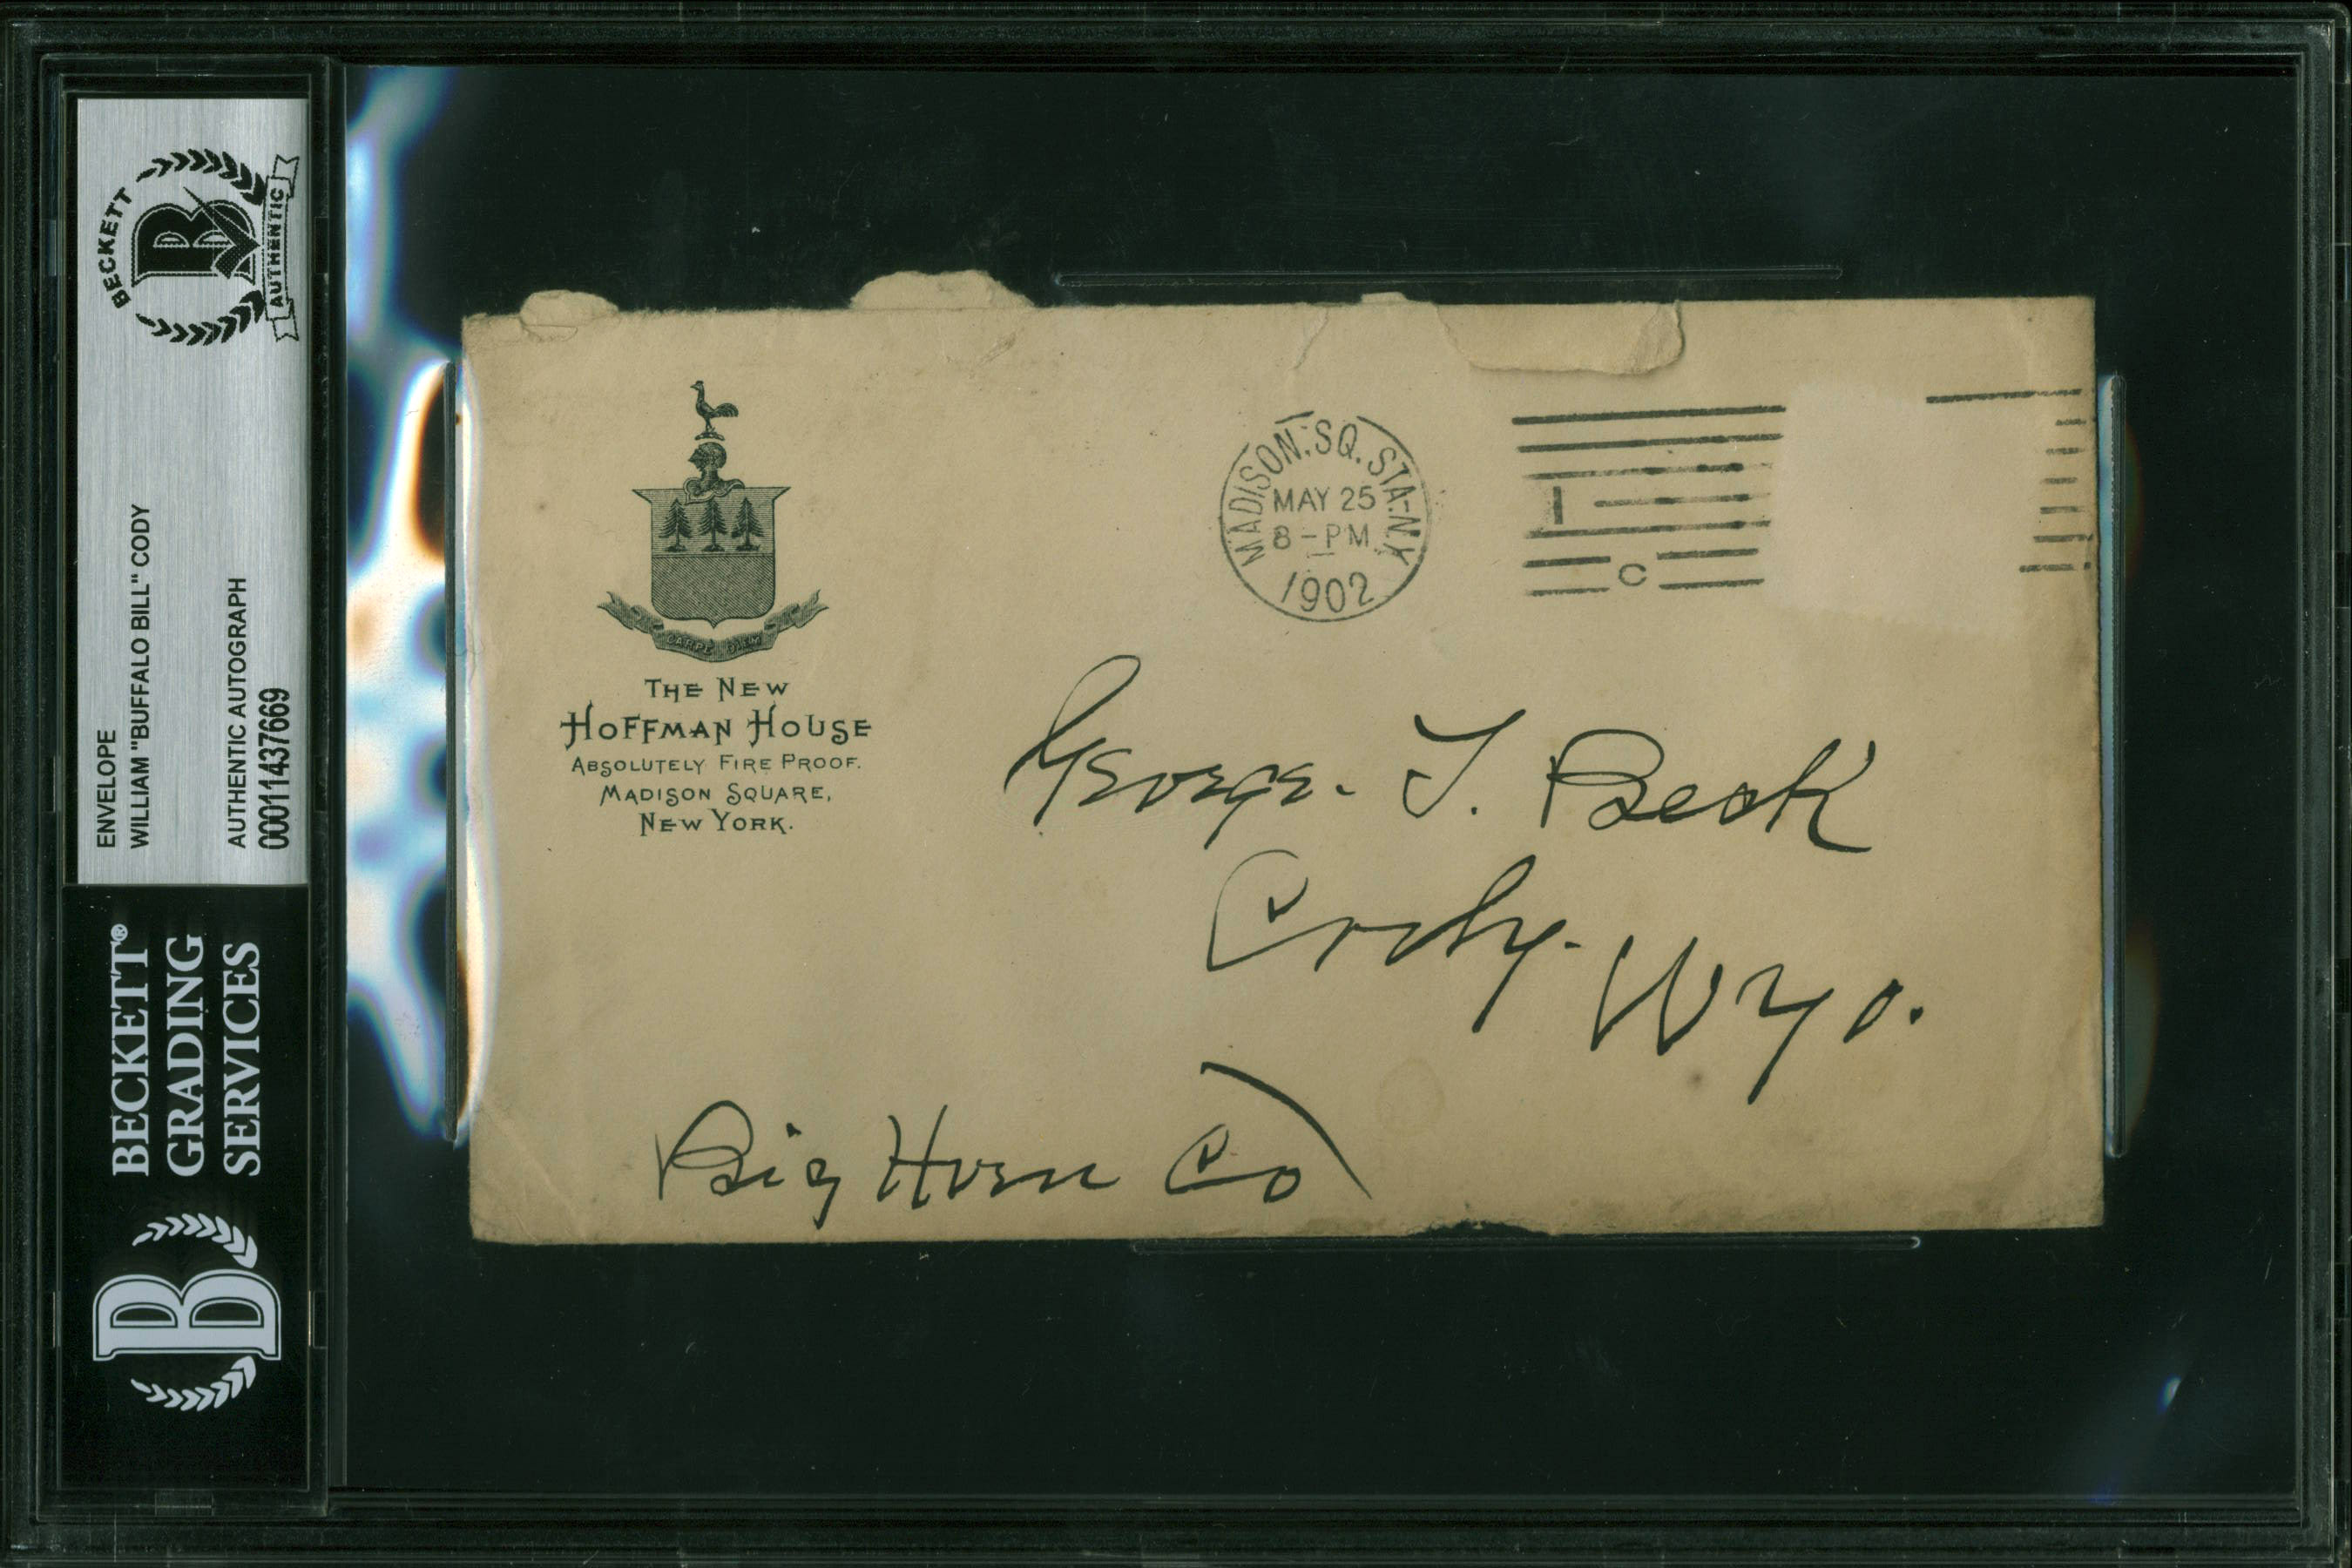 BECKETT
AUTHENTIC
ENVELOPE
WILLIAM "BUFFALO BILL" CODY
AUTHENTIC AUTOGRAPH
00011437669
BECKETT®
GRADING
SERVICES
B
CARPE DIEM
THE NEW
HOFFMAN HOUSE
ABSOLUTELY FIRE PROOF.
MADISON SQUARE,
NEW YORK.
MADISON. SQ. STA. N.Y.
MAY 25
8-PM
1902
1
C
George. T. Beck
Cody. Wyo.
Big Horn Co